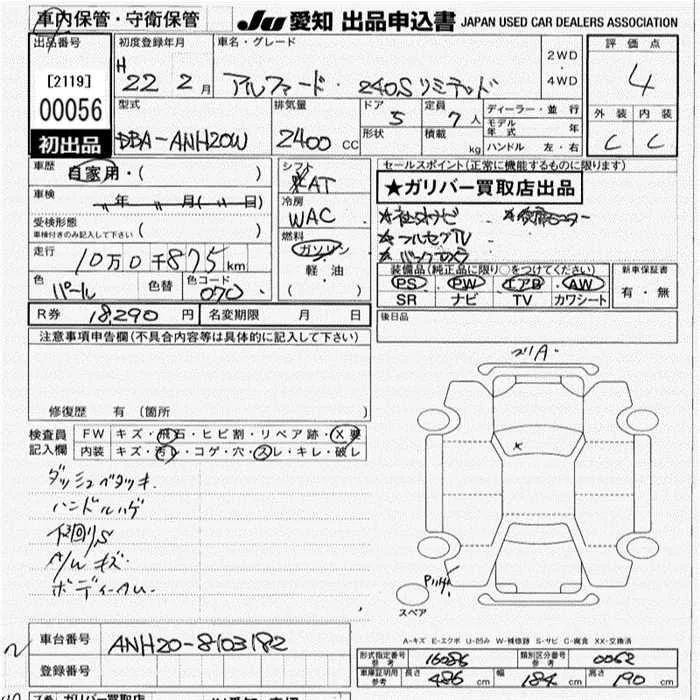 車内保管・守衛保管
JU 愛知 出品申込書 JAPAN USED CAR DEALERS ASSOCIATION
出品番号
[2119]
00056
初出品
初度登録年月
H 22 2月
車名・グレード
アルファード・240Sリミテッド
2WD
・
4WD
評価点
4
外装 内装
C C
型式
DBA-ANH20W
排気量
2400 CC
ドア 5
形状
定員 7人
積載 kg
ディーラー・並行
モデル年式 年
ハンドル 左・右
車歴
自家用・( )
車検
年 月( 日)
受検形態
車検付きのみ記入して下さい ( )
走行
10万0千875km
色
パール
色替
色コード
070
シフト
AT
冷房
WAC
燃料
ガソリン
軽・油
( )
セールスポイント(正常に機能するものに限ります)
★ガリバー買取店出品
★フルセグTV
装備品(純正品に限り○をつけてください)
PS PW エアB AW
SR ナビ TV カワシート
新車保証書
有・無
R券 18,290円
名変期限 月 日
後日品
注意事項申告欄(不具合内容等は具体的に記入して下さい)
修復歴 有(箇所 )
検査員
記入欄
FW キズ・飛石・ヒビ割・リペア跡・X要
内装 キズ・汚レ・コゲ・穴・スレ・キレ・破レ
ダッシュベタツキ.
ハンドルハゲ
下回りS
A/Wキズ
スペア
A-キズ E-エクボ U-凹み W-補修跡 S-サビ C-腐食 XX-交換済
車台番号
ANH20-8103182
登録番号
形式指定番号
参考
16086
類別区分番号
参考
0062
車庫証明用
参考
長さ 486 cm
幅 184 cm
高さ 190 cm